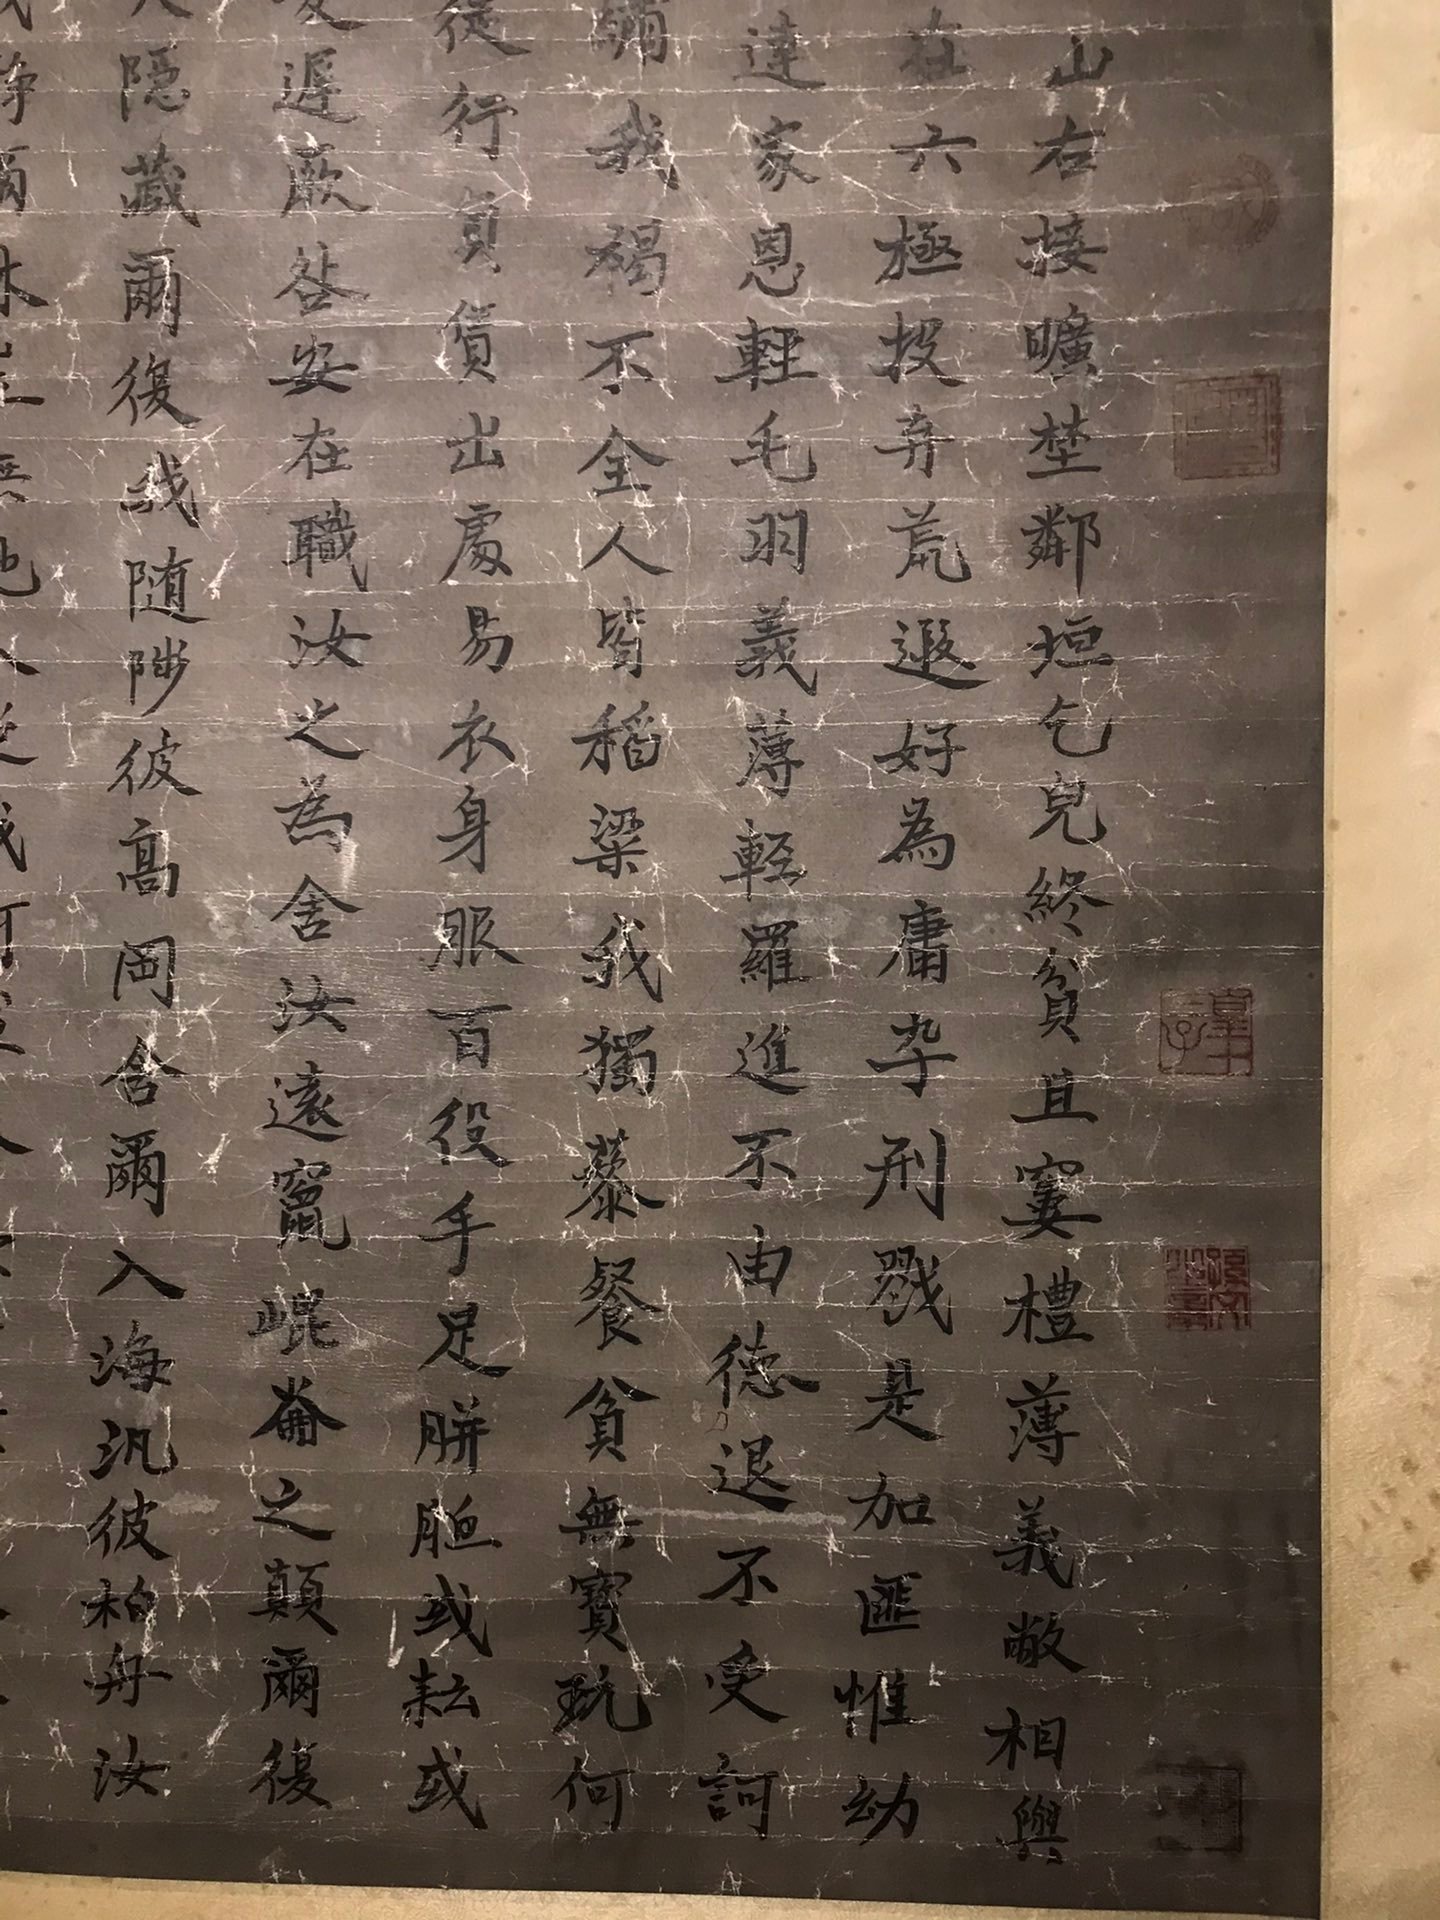 山右接曠埜鄰垣乞兒終貧且窶禮薄義敝相與
在六極投弃荒遐好為庸卒刑戮是加匪惟幼
達家恩輕毛羽義薄輕羅進不由德退不受訶
繡我褐不全人皆稻粱我獨藜餐貧無寶玩何
從行負賃出處易衣身服百役手足胼胝或耘或
遲厥咎安在職汝之為舍汝遠竄崐崙之顛爾復
隱藏爾復我随陟彼高岡舍爾入海汎彼柏舟汝